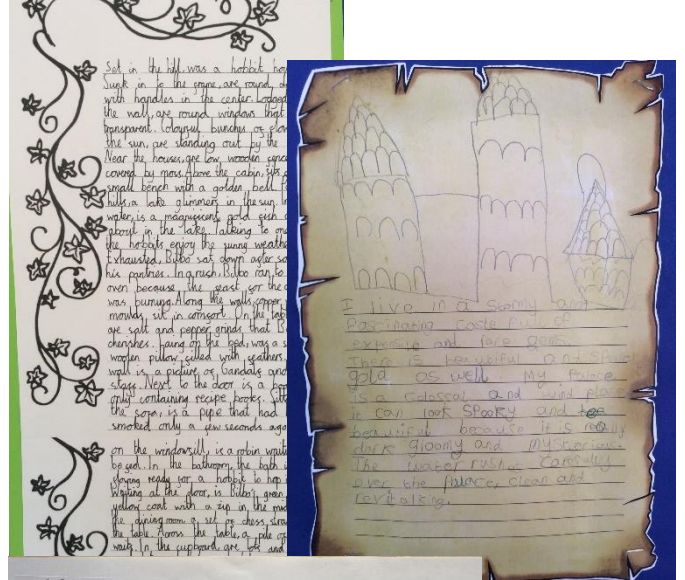 Set in the hill, was a hobbit
Sunk in to the frame, are round,
with handles in the center. Lodged
the wall, are round windows that
transparent. Colourful bunches of
the sun, are standing out by the
Near the houses, are low wooden
covered by moss. Above the cabin, sits
small bench with a golden bell.
hills, a lake glimmers in the sun. In
water, is a magnificent gold fish
about in the lake. Talking to
the hobbits enjoy the sunny
Exhausted, Bilbo sat down after
his pantries. In a rush, Bilbo ran to
oven because the roast for the
was burning. Along the walls, copper
moulds sit in comfort. On the
are salt and pepper grinds that
cherishes. Laying on the bed, was a
woolen pillow filled with feathers.
wall is a picture of Gandalf and
staff. Next to the door is a
only containing recipe books.
the sofa, is a pipe that had
smoked only a few seconds ago
on the windowsill, is a robin
be fed. In the bathroom, the bath
glowing ready for a hobbit to hop
Waiting at the door, is Bilbo's green
yellow coat with a zip in the
the dining room a set of chess,
the table. Across the table, a pile of
waits. In the cupboard are lots and
I live in a and
fascinating full of
and rare gems.
There is beautiful and
gold as well. My Palace
is a colossal and wind place
it can look Spooky and
beautiful because it is really
dark gloomy and mysterious.
The water carefully
over the Palace, clean and